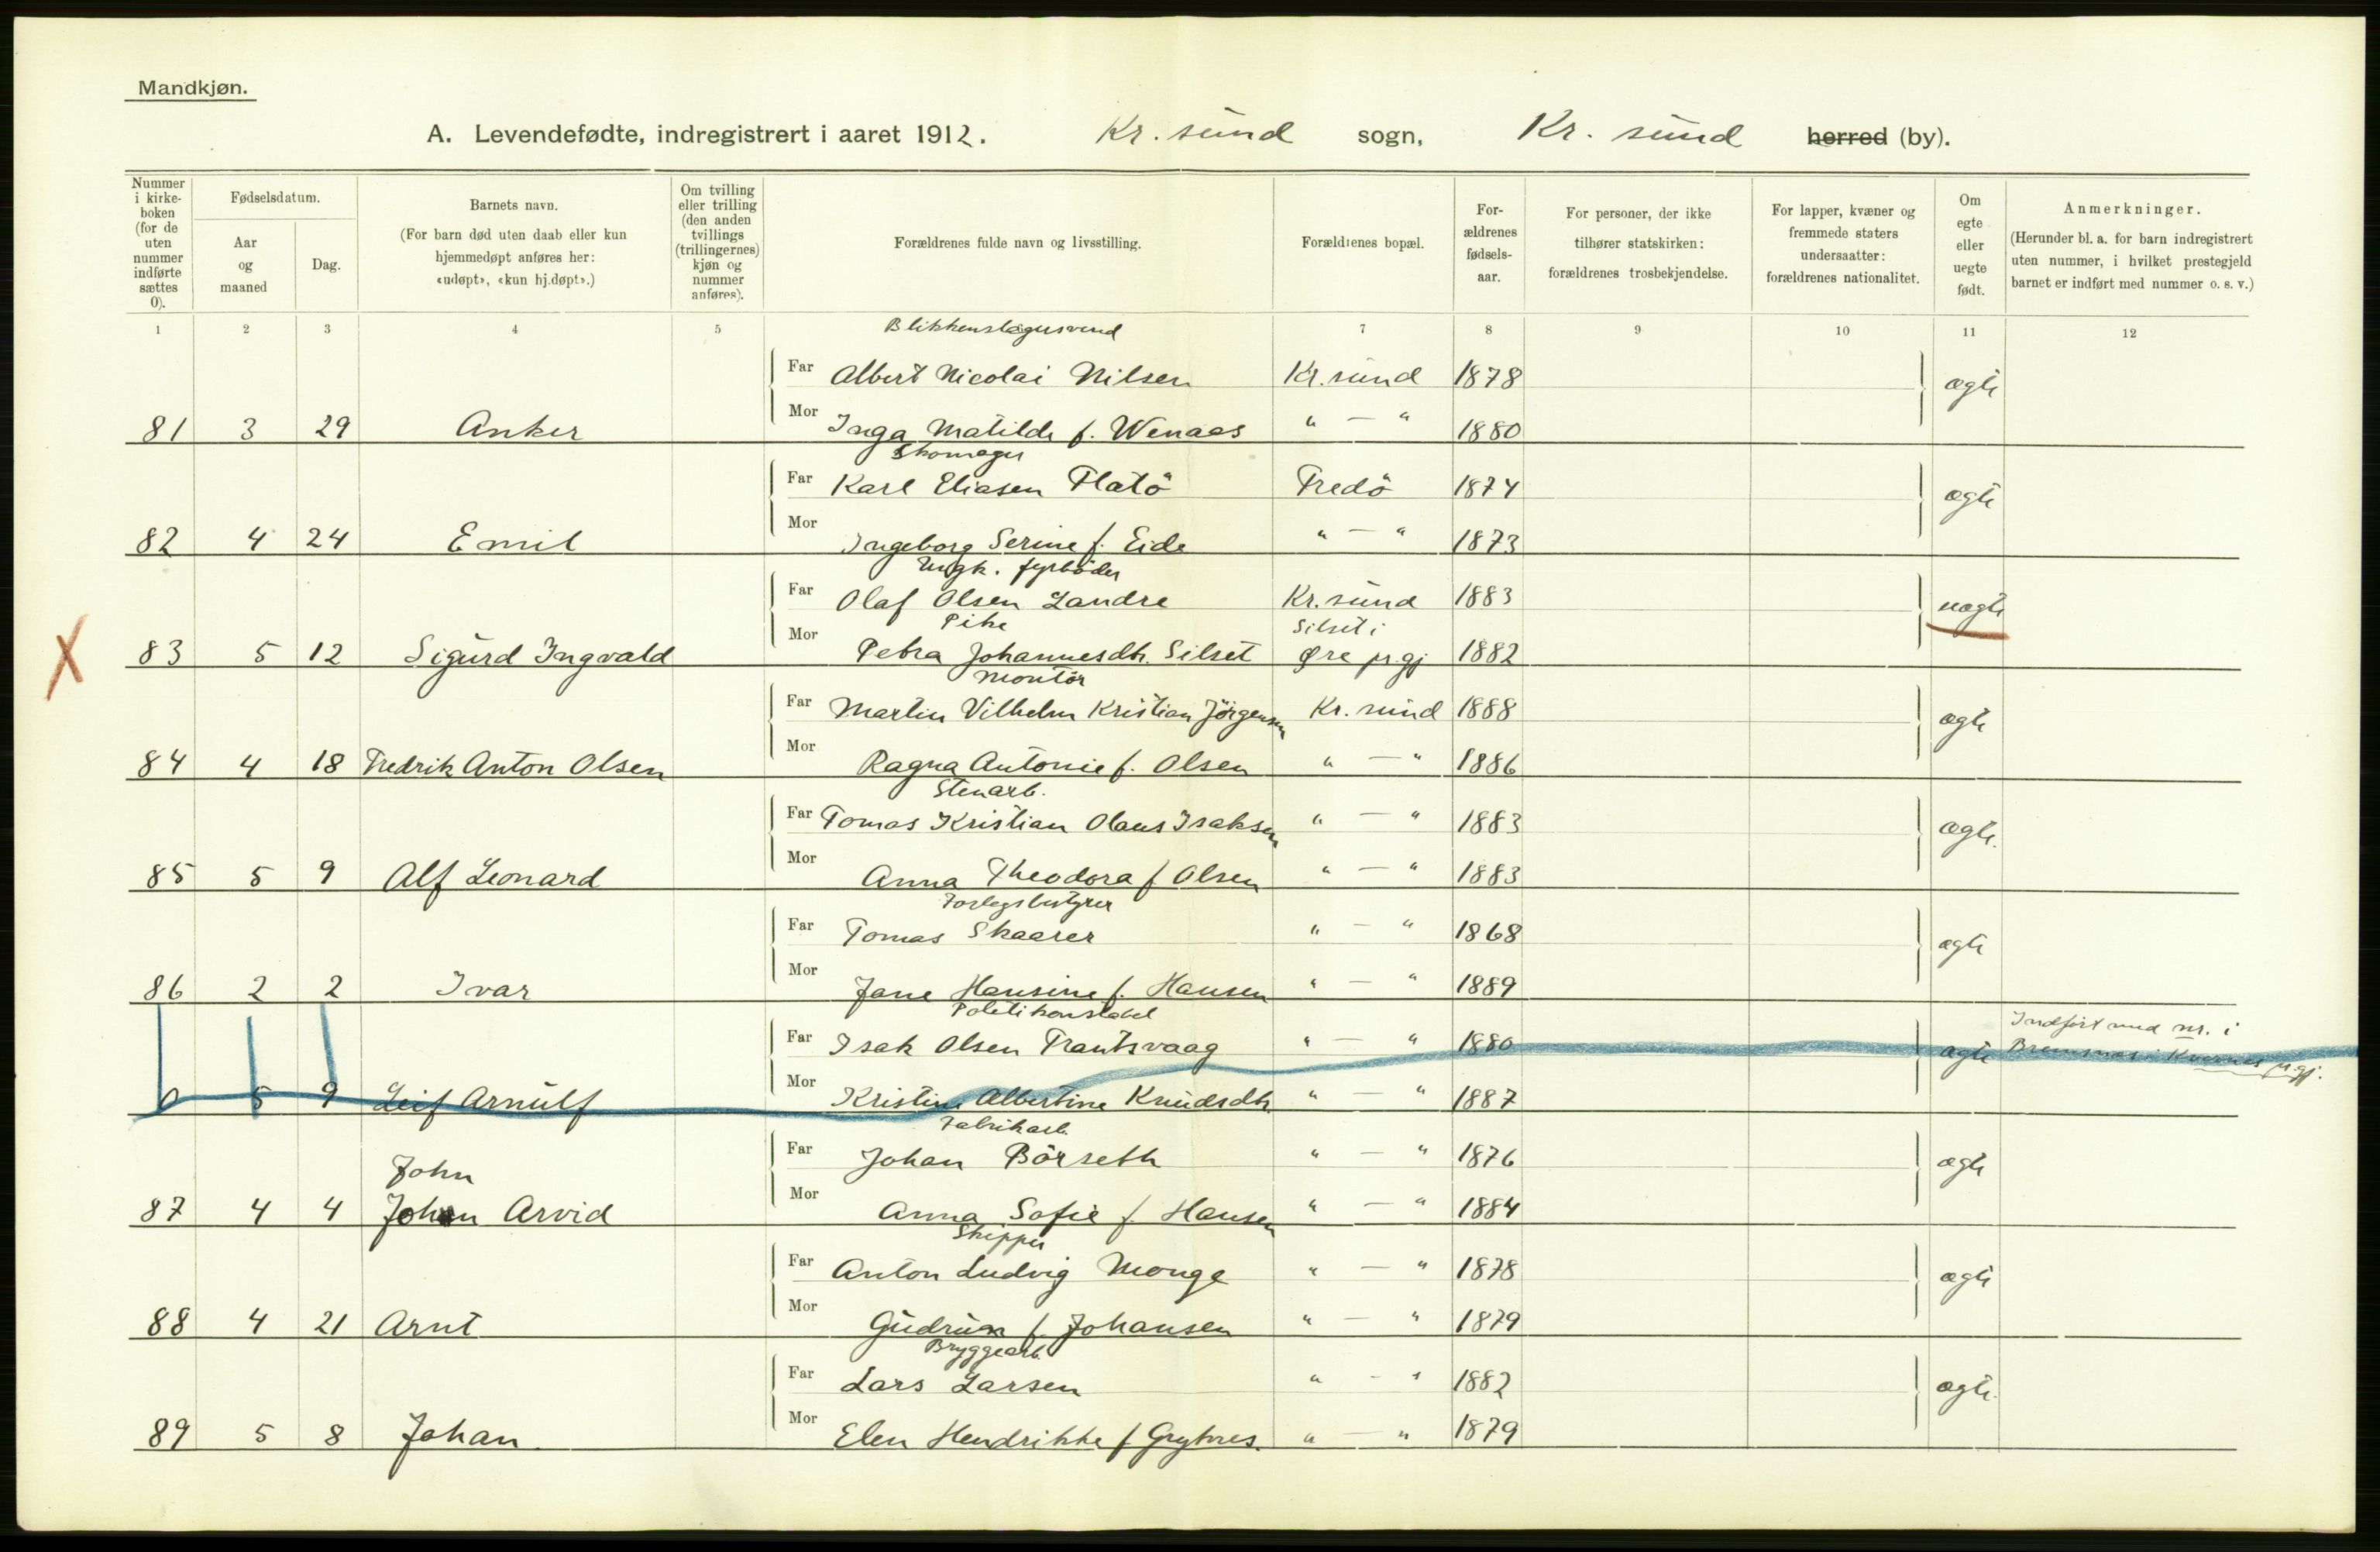 Mandkjøn.
A. Levendefødte, indregistrert i aaret 1912. Kr. sund sogn, Kr. sund herred (by).
Nummer i kirkeboken (for de uten nummer indførte sættes 0).
Fødselsdatum.
Aar og maaned
Dag.
Barnets navn.
(For barn død uten daab eller kun hjemmedøpt anføres her: «udøpt», «kun hj.døpt».)
Om tvilling eller trilling (den anden tvillings (trillingernes) kjøn og nummer anføres).
Forældrenes fulde navn og livsstilling.
Forældrenes bopæl.
Forældrenes fødselsaar.
For personer, der ikke tilhører statskirken: forældrenes trosbekjendelse.
For lapper, kvæner og fremmede staters undersaatter: forældrenes nationalitet.
Om egte eller uegte født.
Anmerkninger.
(Herunder bl. a. for barn indregistrert uten nummer, i hvilket prestegjeld barnet er indført med nummer o. s. v.)
1 2 3 4 5 7 8 9 10 11 12
Blikkenslagersvend
Far Albert Nicolai Nilsen Kr. sund 1878 ægte
81 3 29 Anker Mor Inga Matilde f. Wenaas " — " 1880
Skomager
Far Karl Eliasen Flatö Fredö 1874 ægte
82 4 24 Emil Mor Ingeborg Serine f. Eide " — " 1873
Ungk. fyrböder
Far Olaf Olsen Landre Kr. sund 1883 uægte
Pike Silset i
X 83 5 12 Sigurd Ingvald Mor Petra Johannesdtr. Silset Øre pr.gj 1882
Montör
Far Martin Vilhelm Kristian Jörgensen Kr. sund 1888 ægte
84 4 18 Fredrik Anton Olsen Mor Ragna Antonie f. Olsen " — " 1886
Stenarb.
Far Tomas Kristian Olaus Isaksen " — " 1883 ægte.
85 5 9 Alf Leonard Mor Anna Theodora f Olsen " — " 1883
Far Tomas Skaarer " — " 1868 ægte
86 2 2 Ivar Mor Jane Hansine f. Hansen " — " 1889
Politikonstabel Indført med nr. i
Far Isak Olsen Trantsvaag " — " 1880 ægte Bremsnes i Kvernes p.gj.
0 5 9 Leif Arnulf Mor Kristine Albertine Knudsdtr " — " 1887
Fabrikarb.
Far Johan Börseth " — " 1876 ægte
John
87 4 4 Johan Arvid Mor Anna Sofie f. Hansen " — " 1884
Skipper
Far Anton Ludvig Monge " — " 1878 ægte
88 4 21 Arnt Mor Gudrun f. Johansen " — " 1879
Bryggearb.
Far Lars Larsen " - " 1882 ægte.
89 5 8 Johan Mor Elen Hendrikke f Grytnes. " — " 1879